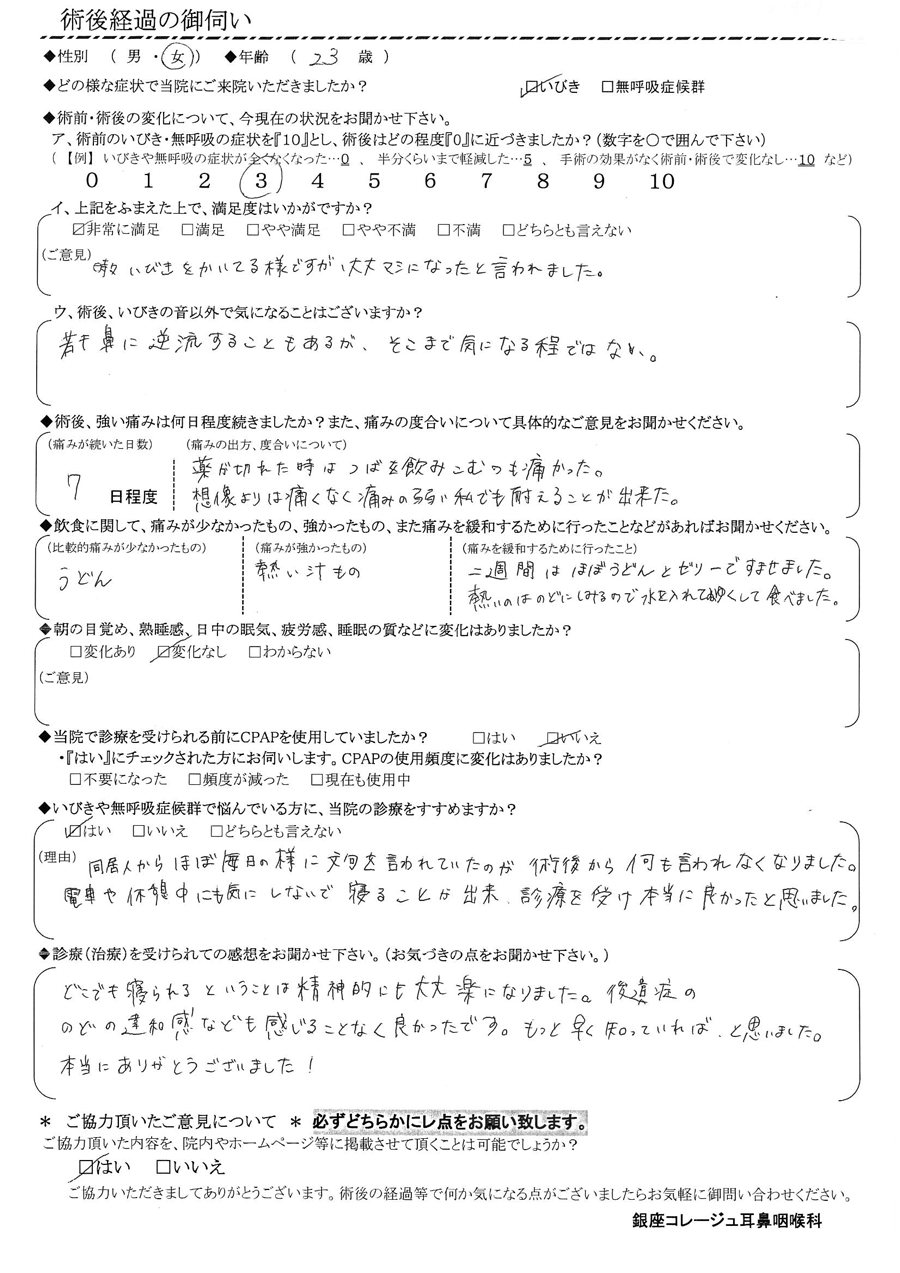 術後経過の御伺い
◆性別 ( 男 ・ 女 ) ◆年齢 ( 23 歳 )
◆どの様な症状で当院にご来院いただきましたか? ☑いびき □無呼吸症候群
◆術前・術後の変化について、今現在の状況をお聞かせ下さい。
ア、術前のいびき・無呼吸の症状を『10』とし、術後はどの程度『0』に近づきましたか?(数字を○で囲んで下さい)
(【例】いびきや無呼吸の症状が全くなくなった…0 、 半分くらいまで軽減した…5 、 手術の効果がなく術前・術後で変化なし…10 など)
0 1 2 3 4 5 6 7 8 9 10
イ、上記をふまえた上で、満足度はいかがですか?
☑非常に満足 □満足 □やや満足 □やや不満 □不満 □どちらとも言えない
(ご意見)
いびきをかいてる様ですが、大丈マシになったと言われました。
ウ、術後、いびきの音以外で気になることはございますか?
若干鼻に逆流することもあるが、そこまで気になる程ではない。
◆術後、強い痛みは何日程度続きましたか?また、痛みの度合いについて具体的なご意見をお聞かせください。
(痛みが続いた日数) (痛みの出方、度合いについて)
薬が切れた時はつばを飲みこむのも痛かった。
7 日程度
想像よりは痛くなく痛みの弱い私でも耐えることが出来た。
◆飲食に関して、痛みが少なかったもの、強かったもの、また痛みを緩和するために行ったことなどがあればお聞かせください。
(比較的痛みが少なかったもの) (痛みが強かったもの) (痛みを緩和するために行ったこと)
うどん 熱い汁もの 二週間はほぼうどんとゼリーですませました。
熱いのはのどにしみるので水を入れてぬくして食べました。
◆朝の目覚め、熟睡感、日中の眠気、疲労感、睡眠の質などに変化はありましたか?
□変化あり ☑変化なし □わからない
(ご意見)
◆当院で診療を受けられる前にCPAPを使用していましたか? □はい ☑いいえ
・『はい』にチェックされた方にお伺いします。CPAPの使用頻度に変化はありましたか?
□不要になった □頻度が減った □現在も使用中
◆いびきや無呼吸症候群で悩んでいる方に、当院の診療をすすめますか?
☑はい □いいえ □どちらとも言えない
(理由) 同居人からほぼ毎日の様に文句を言われていたのが術後から何も言われなくなりました。
電車や休憩中にも気にしないで寝ることが出来、診療を受け本当に良かったと思いました。
◆診療(治療)を受けられての感想をお聞かせ下さい。(お気づきの点をお聞かせ下さい。)
どこでも寝られるということは精神的にも大丈楽になりました。後遺症の
のどの違和感なども感じることなく良かったです。もっと早く知っていれば、と思いました。
本当にありがとうございました!
* ご協力頂いたご意見について * 必ずどちらかにレ点をお願い致します。
ご協力頂いた内容を、院内やホームページ等に掲載させて頂くことは可能でしょうか?
☑はい □いいえ
ご協力いただきましてありがとうございます。術後の経過等で何か気になる点がございましたらお気軽に御問い合わせください。
銀座コレージュ耳鼻咽喉科